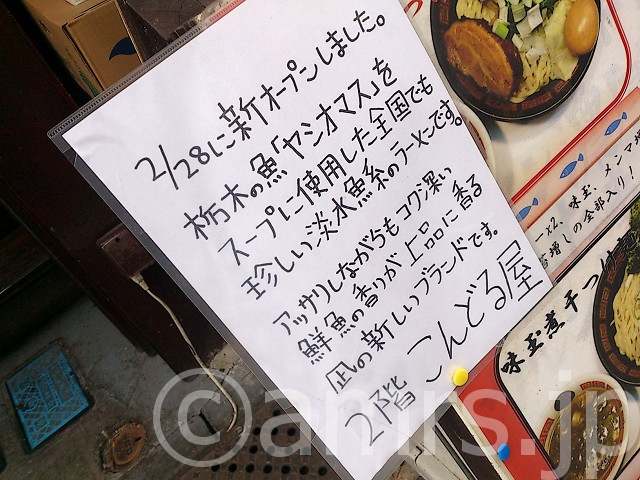 2/28に新オープンしました。
栃木の魚「ヤシオマス」を
スープに使用した全国でも
珍しい淡水魚系のラーメンです。
アッサリしながらもコクが深い
鮮魚の香りが上品に香る
凪の新しいブランドです。
2階 こんどる屋
x2、味玉、メンマ
増しの全部入り!
味玉煮干つけ
©amrs.jp